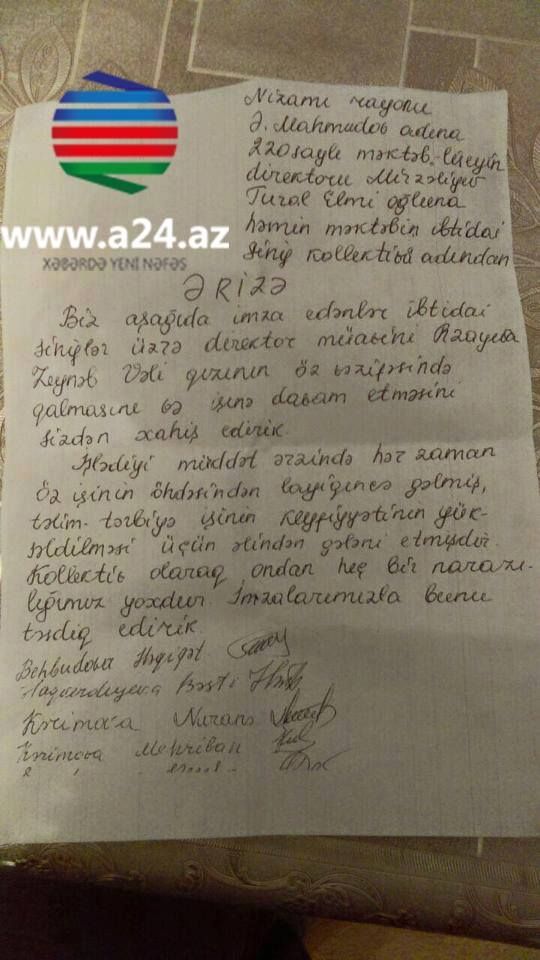 Nizami rayonu
Ə. Mahmudov adına
220 saylı məktəb-liseyin
direktoru Mirzəliyev
Tural Elmi oğluna
həmin məktəbin ibtidai
sinif kollektivi adından
www.a24.az
XƏBƏRDƏ YENİ NƏFƏS
ƏRİZƏ
Biz aşağıda imza edənlər ibtidai
siniflər üzrə direktor müavini Rzayeva
Zeynəb Vəli qızının öz vəzifəsində
qalmasını və işinə davam etməsini
sizdən xahiş edirik.
İşlədiyi müddət ərzində hər zaman
öz işinin öhdəsindən layiqincə gəlmiş,
təlim-tərbiyə işinin keyfiyyətinin yük-
səldilməsi üçün əlindən gələni etmişdir.
Kollektiv olaraq ondan heç bir narazı-
lığımız yoxdur. İmzalarımızla bunu
təsdiq edirik.
Behbudova Həqiqət
Haqverdiyeva Bəsti
Kərimova
Kərimova Mehriban